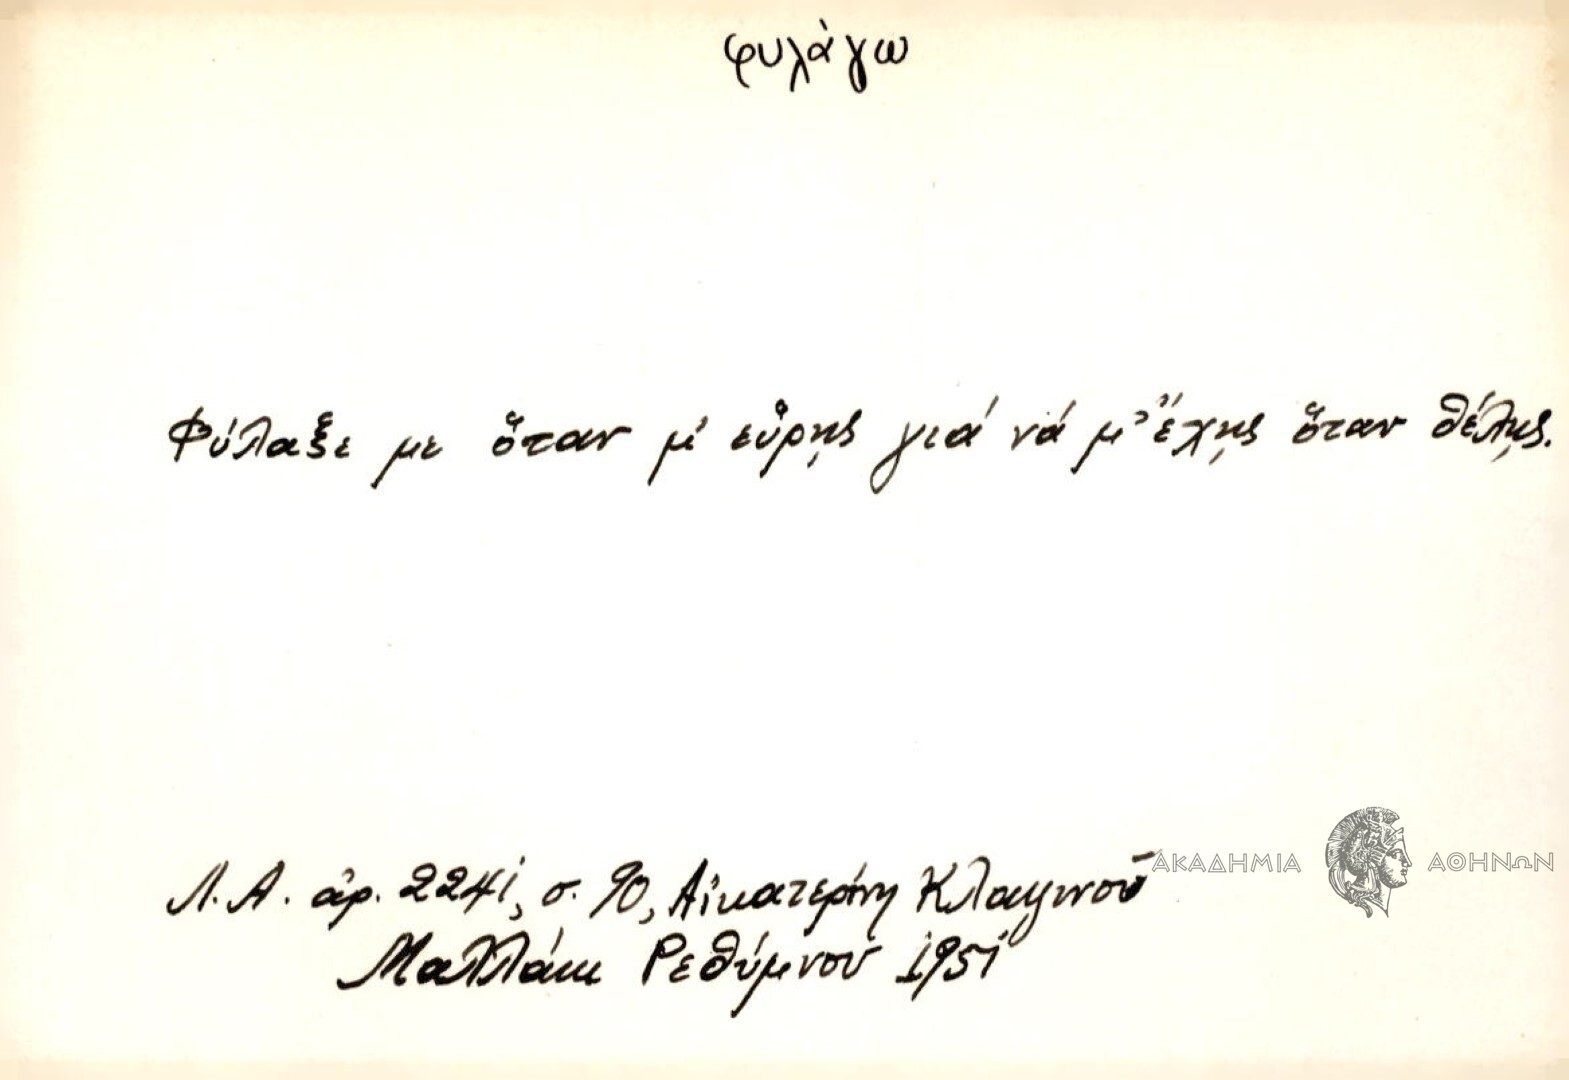 φυλάγω
Φύλαξε με ὅταν μ' εὕρῃς γιά νά μ' ἔχῃς ὅταν θέλῃς.
Λ.Α. ἀρ. 2241, σ. 90, Αἰκατερίνη
Μαλλάκι Ρεθύμνου 1951
ΑΚΑΔΗΜΙΑ ΑΘΗΝΩΝ